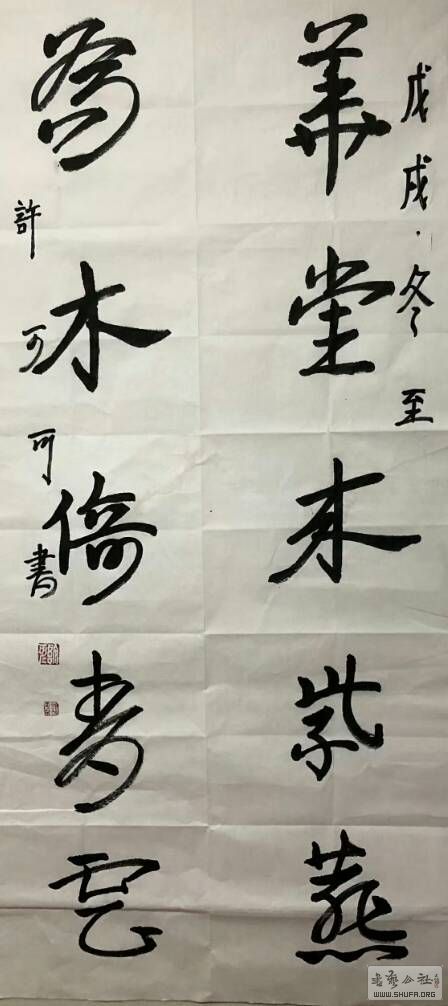 戊戌·冬至
華堂来紫燕
喬木倚青雲
許可可書
书艺公社
WWW.SHUFA.ORG